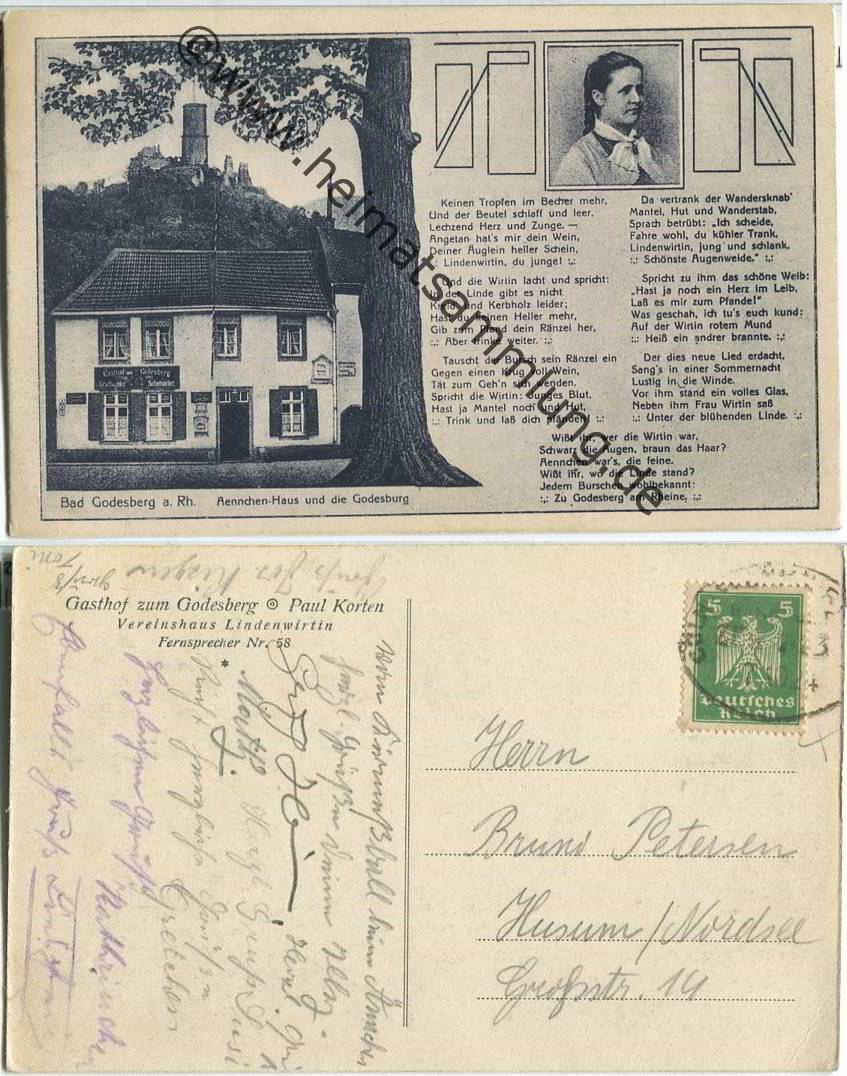 ©www.heimatsammlung.de
Gasthof zum Godesberg
Geschwister Schumacher
Bad Godesberg a. Rh. Aennchen-Haus und die Godesburg
Keinen Tropfen im Becher mehr,
Und der Beutel schlaff und leer,
Lechzend Herz und Zunge. —
Angetan hat's mir dein Wein,
Deiner Äuglein heller Schein,
:,: Lindenwirtin, du junge! :,:
Und die Wirtin lacht und spricht:
„In der Linde gibt es nicht
Kreid' und Kerbholz leider;
Hast du keinen Heller mehr,
Gib zum Pfand dein Ränzel her,
:,: Aber trinke weiter. :,:
Tauscht der Bursch sein Ränzel ein
Gegen einen Krug voll Wein,
Tät zum Geh'n sich wenden.
Spricht die Wirtin: „Junges Blut,
Hast ja Mantel noch und Hut,
:,: Trink und laß dich pfänden.“ :,:
Da vertrank der Wandersknab'
Mantel, Hut und Wanderstab,
Sprach betrübt: „Ich scheide,
Fahre wohl, du kühler Trank,
Lindenwirtin, jung und schlank,
:,: Schönste Augenweide.“ :,:
Spricht zu ihm das schöne Weib:
„Hast ja noch ein Herz im Leib,
Laß es mir zum Pfande!“
Was geschah, ich tu's euch kund:
Auf der Wirtin rotem Mund
:,: Heiß ein andrer brannte. :,:
Der dies neue Lied erdacht,
Sang's in einer Sommernacht
Lustig in die Winde.
Vor ihm stand ein volles Glas,
Neben ihm Frau Wirtin saß
:,: Unter der blühenden Linde. :,:
Wißt ihr, wer die Wirtin war,
Schwarz die Augen, braun das Haar?
Aennchen war's, die feine.
Wißt ihr, wo die Linde stand?
Jedem Burschen wohlbekannt:
:,: Zu Godesberg am Rheine. :,:
Toni
Gasthof zum Godesberg Paul Korten
Vereinshaus Lindenwirtin
Fernsprecher Nr. 58
*
Herzl. Grüße
Herzl. Gruß Susi
Gretchen
Herzlichen Gruß
Kathrinchen
Ebenfalls Gruß
5 5
Deutsches
Reich
Herrn
Bruno Petersen
Husum/Nordsee
Großstr. 19